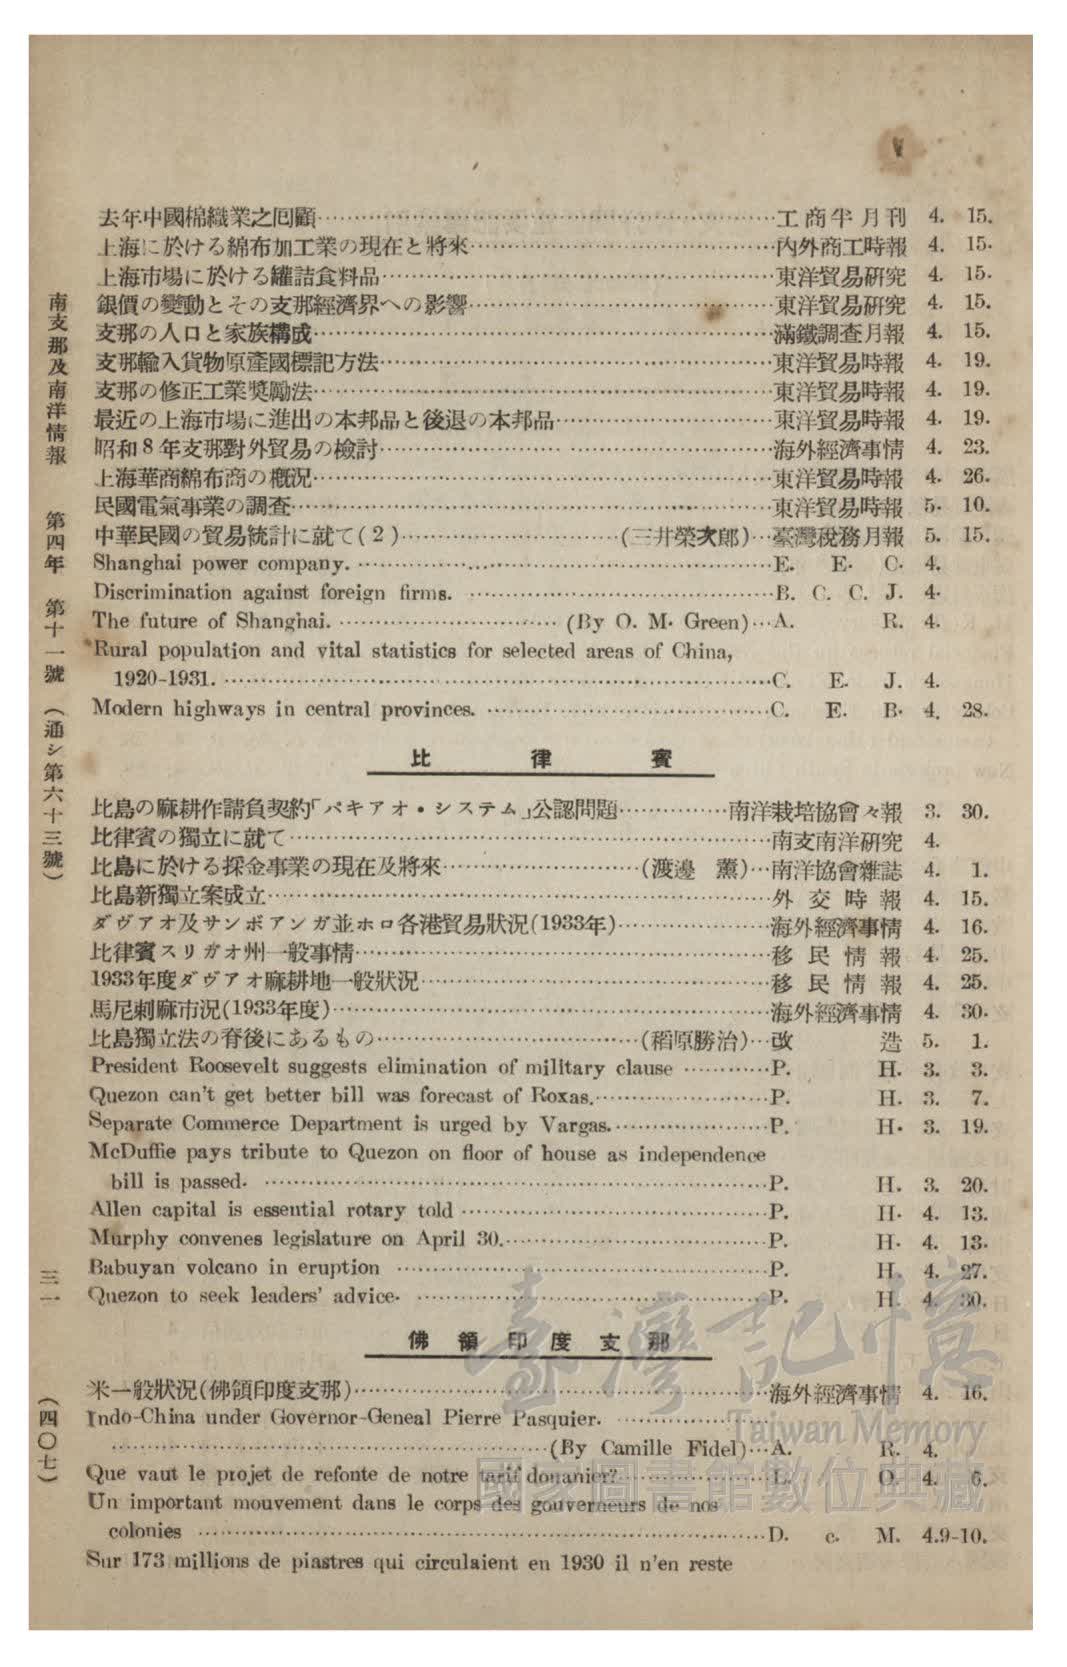 去年中國棉織業之囘顧……工商半月刊 4. 15.
上海に於ける綿布加工業の現在と將來……內外商工時報 4. 15.
上海市場に於ける罐詰食料品……東洋貿易硏究 4. 15.
銀價の變動とその支那經濟界への影響……東洋貿易硏究 4. 15.
支那の人口と家族構成……滿鐵調査月報 4. 15.
支那輸入貨物原產國標記方法……東洋貿易時報 4. 19.
支那の修正工業奬勵法……東洋貿易時報 4. 19.
最近の上海市場に進出の本邦品と後退の本邦品……東洋貿易時報 4. 19.
昭和8年支那對外貿易の檢討……海外經濟事情 4. 23.
上海華商綿布商の槪況……東洋貿易時報 4. 26.
民國電氣事業の調査……東洋貿易時報 5. 10.
中華民國の貿易統計に就て(2)……(三井榮次郞)…臺灣稅務月報 5. 15.
Shanghai power company. ……E. E. C. 4.
Discrimination against foreign firms. ……B. C. C. J. 4.
The future of Shanghai. ……(By O. M. Green)…A. R. 4.
Rural population and vital statistics for selected areas of China,
1920-1931. ……C. E. J. 4.
Modern highways in central provinces. ……C. E. B. 4. 28.
比律賓
比島の麻耕作請負契約「パキアオ・システム」公認問題……南洋栽培協會々報 3. 30.
比律賓の獨立に就て……南支南洋硏究 4.
比島に於ける採金事業の現在及將來……(渡邊 薰)…南洋協會雜誌 4. 1.
比島新獨立案成立……外交時報 4. 15.
ダヴアオ及サンボアンガ並ホロ各港貿易狀況(1933年)……海外經濟事情 4. 16.
比律賓スリガオ州一般事情……移民情報 4. 25.
1933年度ダヴアオ麻耕地一般狀況……移民情報 4. 25.
馬尼剌麻市況(1933年度)……海外經濟事情 4. 30.
比島獨立法の脊後にあるもの……(稻原勝治)…改造 5. 1.
President Roosevelt suggests elimination of military clause ……P. H. 3. 3.
Quezon can't get better bill was forecast of Roxas.……P. H. 3. 7.
Separate Commerce Department is urged by Vargas.……P. H. 3. 19.
McDuffie pays tribute to Quezon on floor of house as independence
bill is passed. ……P. H. 3. 20.
Allen capital is essential rotary told ……P. H. 4. 13.
Murphy convenes legislature on April 30.……P. H. 4. 13.
Babuyan volcano in eruption ……P. H. 4. 27.
Quezon to seek leaders' advice. ……P. H. 4. 30.
佛領印度支那
米一般狀況(佛領印度支那)……海外經濟事情 4. 16.
Indo-China under Governor-Geneal Pierre Pasquier. ……
……(By Camille Fidel)…A. R. 4.
Que vaut le projet de refonte de notre tarif douanier?……L. O. 4. 6.
Un important mouvement dans le corps des gouverneurs de nos
colonies ……D. c. M. 4.9-10.
Sur 173 millions de piastres qui circulaient en 1930 il n'en reste
南支那及南洋情報 第四年 第十一號(通シ第六十三號) 三一 (四〇七)
臺灣記憶
Taiwan Memory
國家圖書館數位典藏